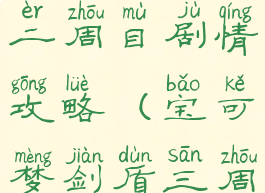 èr zhōu mù jù qíng
二周目剧情
gōng lüè bǎo kě
攻略(宝可
mèng jiàn dùn sān zhōu
梦剑盾三周